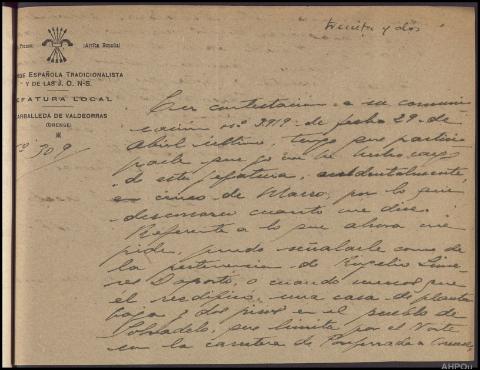 treinta y dos
¡Arriba España!
Española Tradicionalista
y de las J. O. N-S.
Jefatura Local
Carballeda de Valdeorras
(Orense)
309
En contestacion a su comuni-
cacion nº 3919 de fecha 29 de
Abril último, tengo que partici-
parle que yo me he hecho cargo
de esta Jefatura, accidentalmente,
en cinco de Marzo, por lo que
desconozco cuanto me dice.
Referente a lo que ahora me
pide, puedo señalarle como de
la pertenencia de Rogelio
res Saporto, o cuando menos que
el reedifico, una casa de planta
baja y dos pisos en el pueblo de
Sobradelo, que limita por el Norte
con la carretera de Ponferrada a Orense
AHPOu